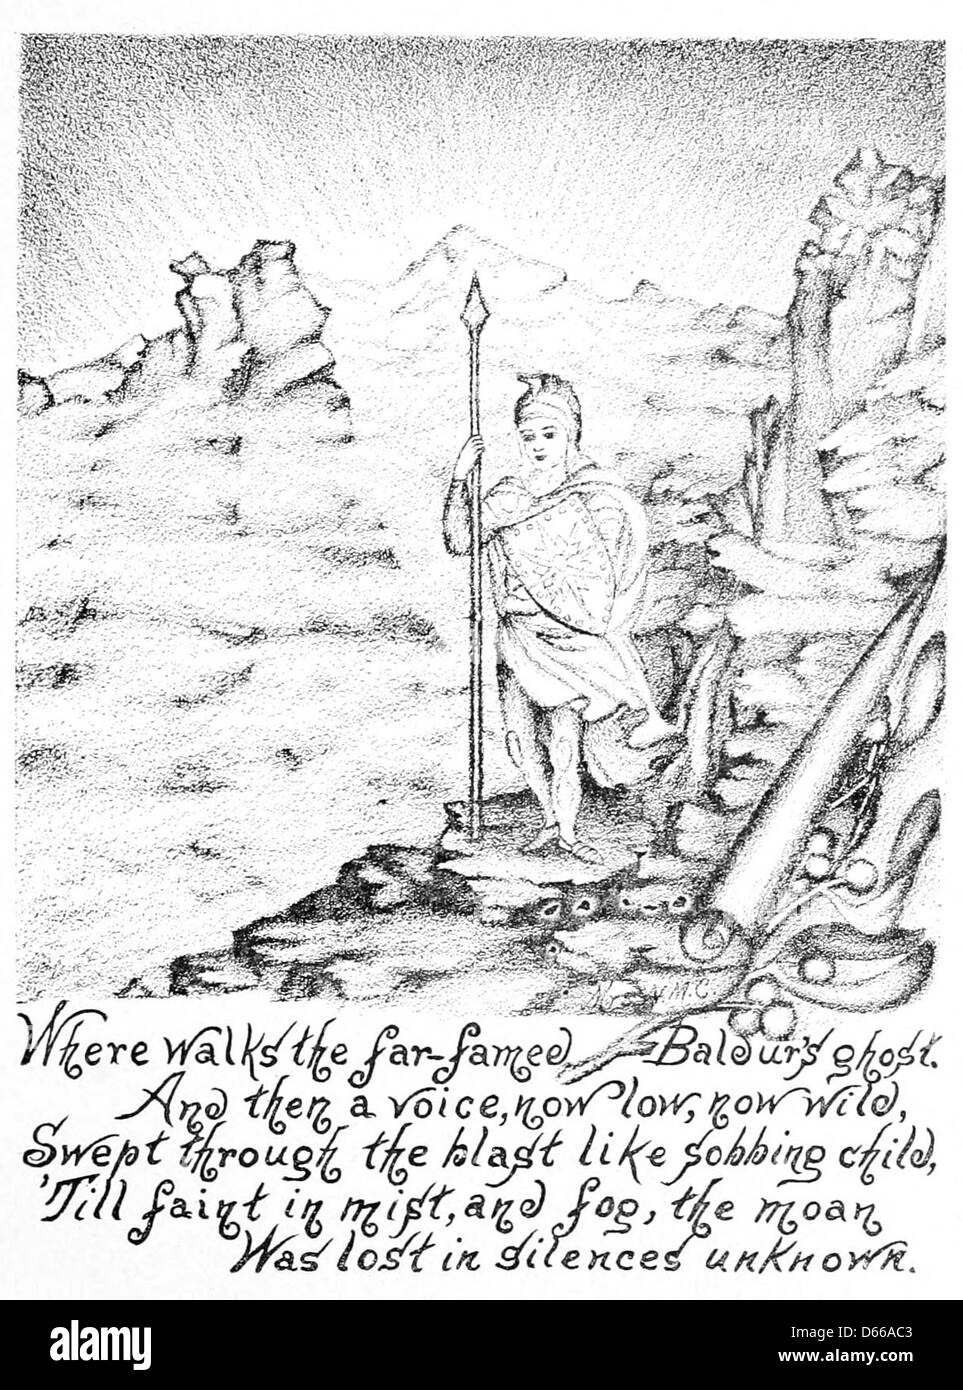 M.C.
Where walks the far-famed Baldur's ghost.
And then a voice, now low, now wild,
Swept through the blast like sobbing child,
'Till faint in mist, and fog, the moan
Was lost in silences unknown.
alamy
Image ID: D66AC3
www.alamy.com